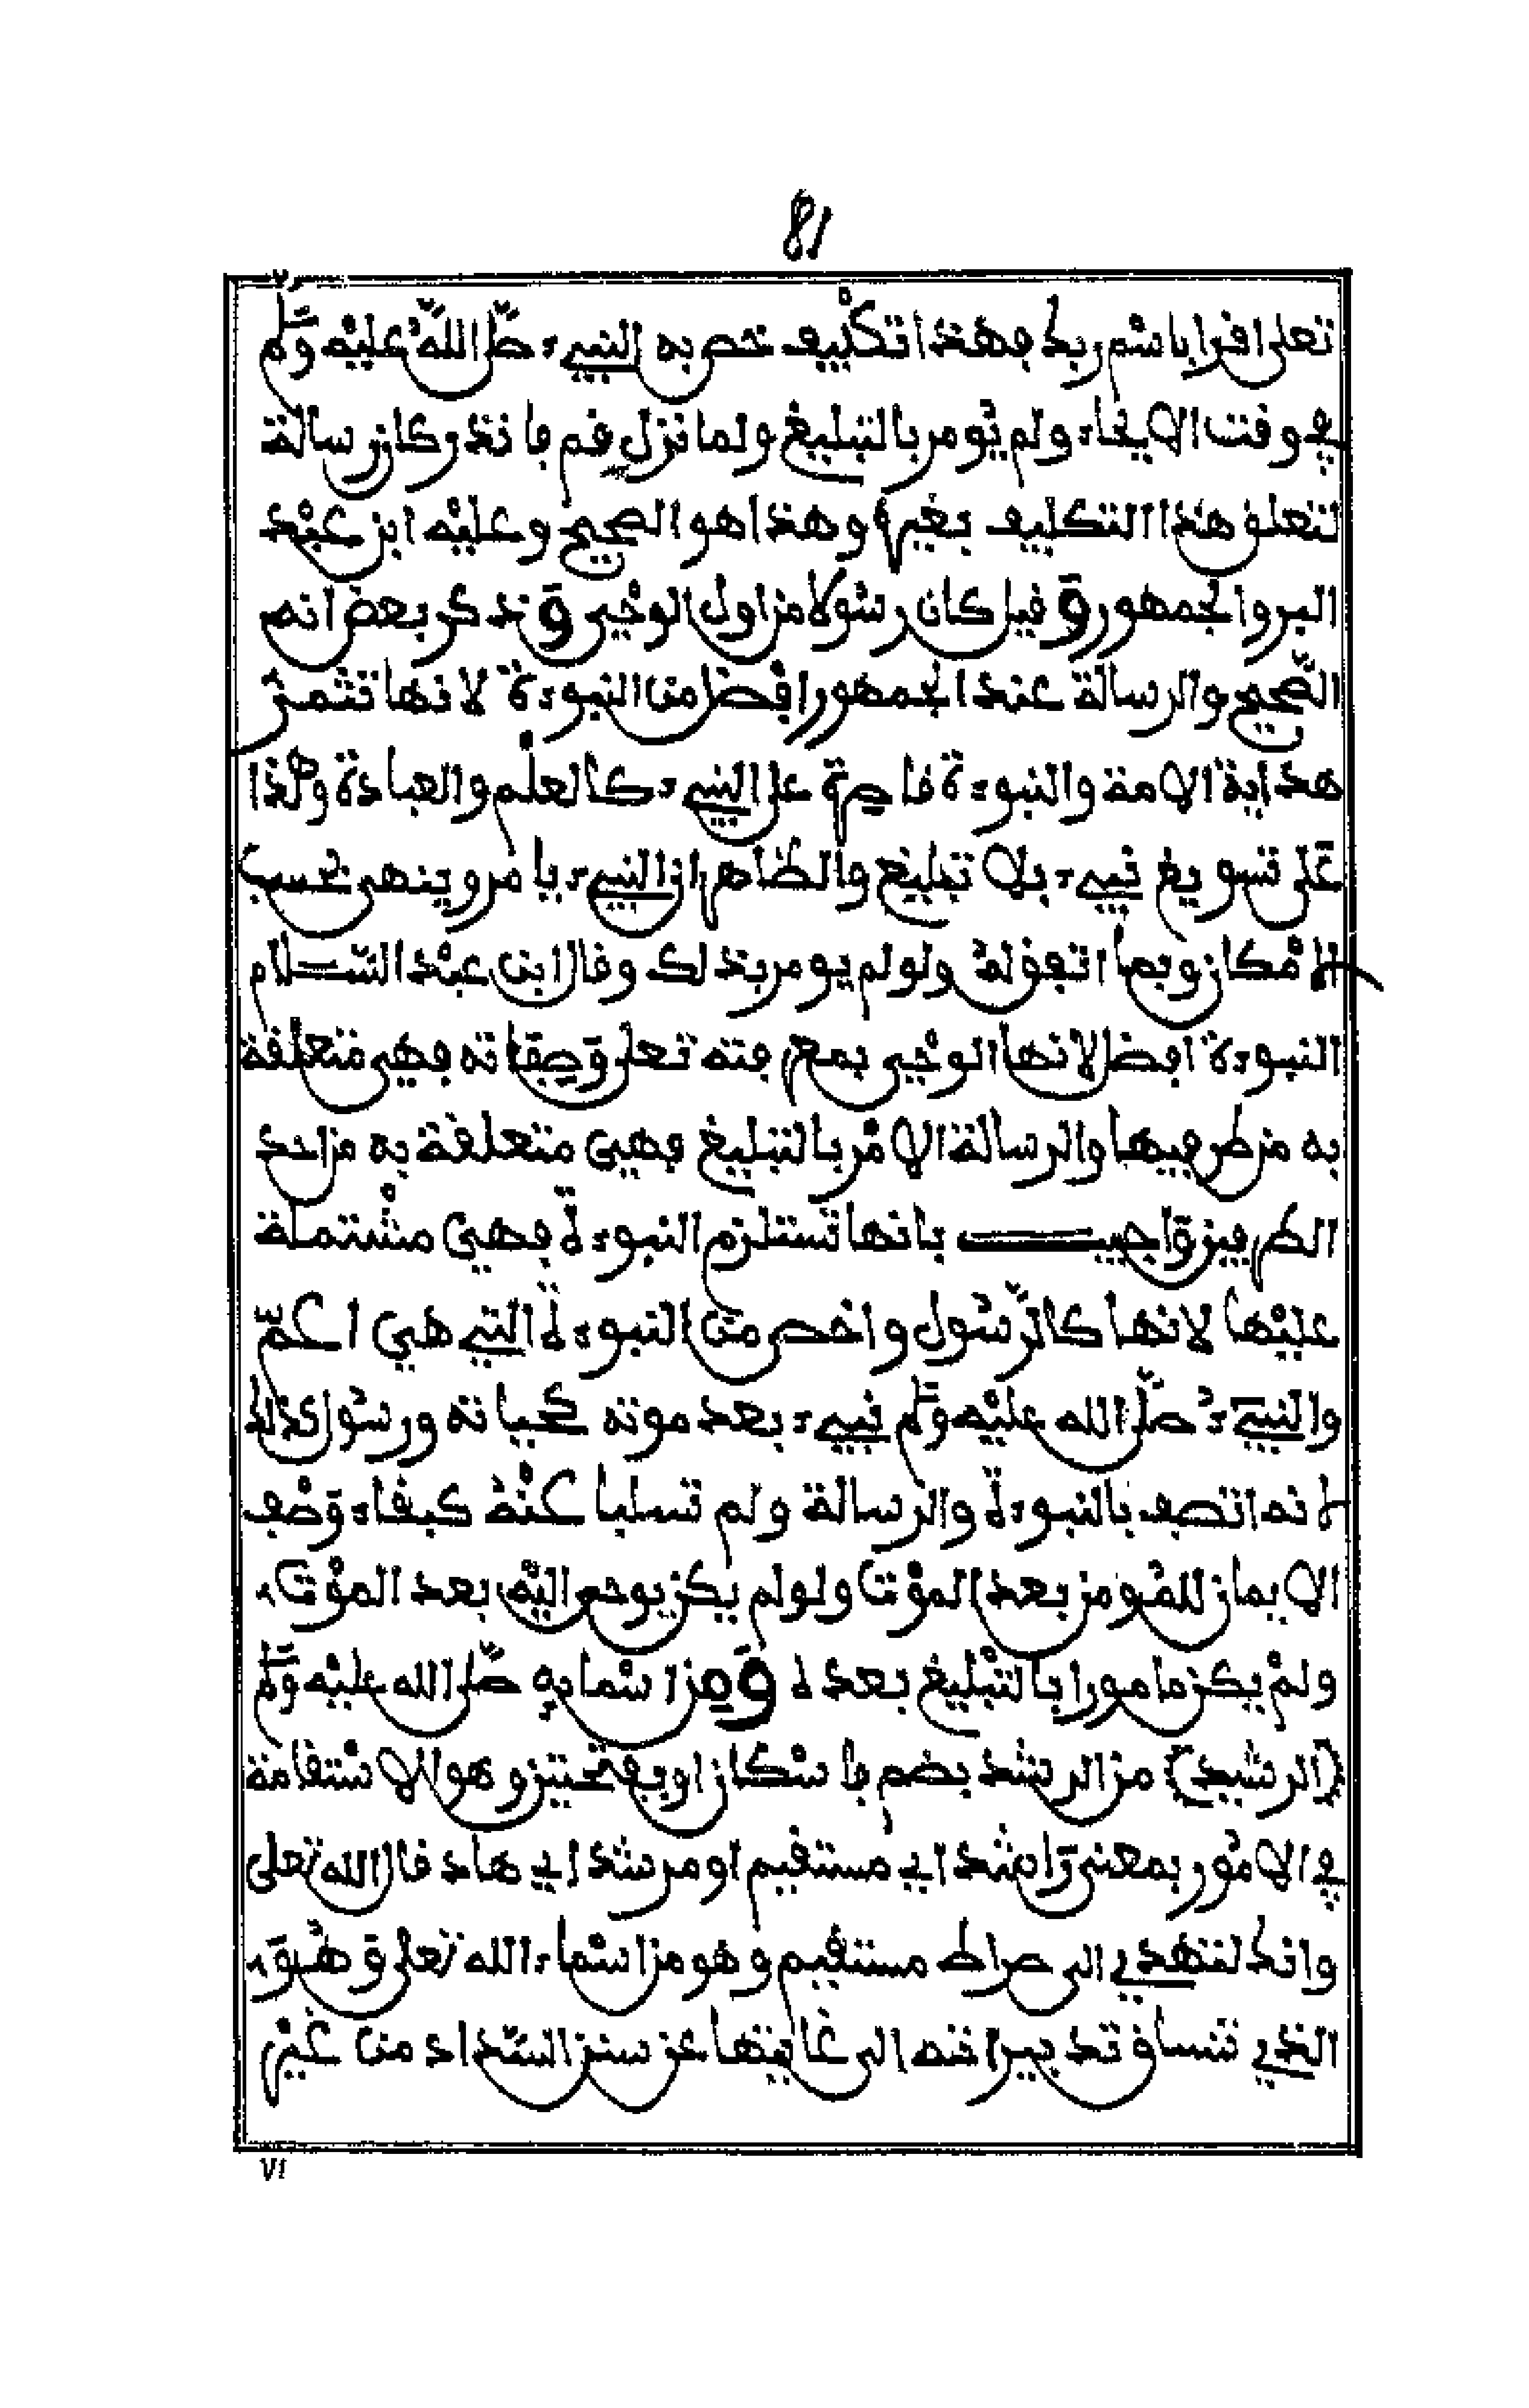 81
تعلى اقرا باسم ربك فهذا تكليف خص به النبيء صلى الله عليه وسلم
في وقت الايحاء ولم يومر بالتبليغ ولما نزل قم فانذر كان رسالة
لتعلق هذا التكليف بغيره وهذا هو الصحيح وعليه ابن عبد
البر والجمهور وقيل كان رسولا من اول الوحي وذكر بعض انه
الصحيح والرسالة عند الجمهور افضل من النبوءة لانها تثمر
هداية الامة والنبوءة قاصرة على النبيء كالعلم والعبادة وهذا
على تسويغ نبيء بلا تبليغ والظاهر ان النبيء يامر وينهى بحسب
الامكان وبما اتفق له ولو لم يومر بذلك وقال ابن عبد السلام
النبوءة افضل لانها الوحي بمعرفته تعلى وصفاته فهي متعلقة
به من طرفيها والرسالة الامر بالتبليغ فهي متعلقة به من احد
الطرفين واجيب بانها تستلزم النبوءة فهي مشتملة
عليها لانها كالرسول واخص من النبوءة التي هي اعم
والنبيء صلى الله عليه وسلم نبيء بعد موته كحياته ورسول كذلك
لانه اتصف بالنبوءة والرسالة ولم تسلبا عنه كبقاء وصف
الايمان للمومن بعد الموت ولو لم يكن يوحى اليه بعد الموت
ولم يكن مامورا بالتبليغ بعده ومن اسمايه صلى الله عليه وسلم
(الرشيد) من الرشد بضم فاسكان او بفتحتين وهو الاستقامة
في الامور بمعنى راشد اي مستقيم او مرشد اي هاد قال الله تعلى
وانك لتهدي الى صراط مستقيم وهو من اسماء الله تعلى وهو
الذي تنساق تدبيراته الى غايتها عن سنن السداد من غير
٧١